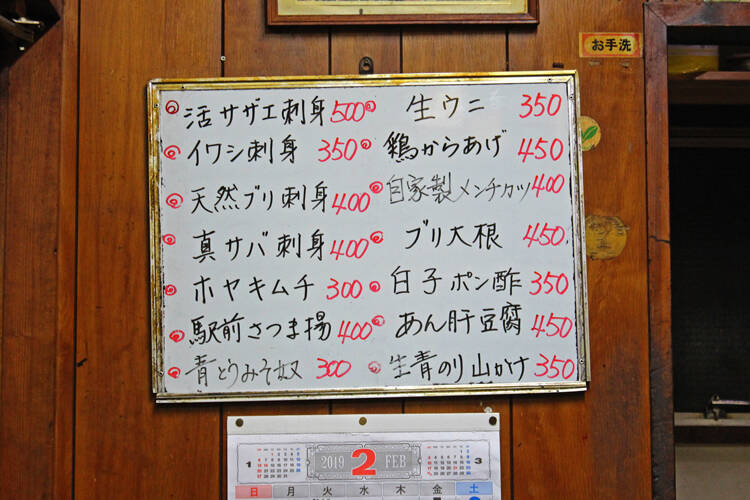 お手洗
活サザエ刺身 500
イワシ刺身 350
天然ブリ刺身 400
真サバ刺身 400
ホヤキムチ 300
駅前さつま揚 400
青とうみそ奴 300
生ウニ 350
鶏からあげ 450
自家製メンチカツ 400
ブリ大根 450
白子ポン酢 350
あん肝豆腐 450
生青のり山かけ 350
1
2019 2 FEB
3
日 月 火 水 木 金 土